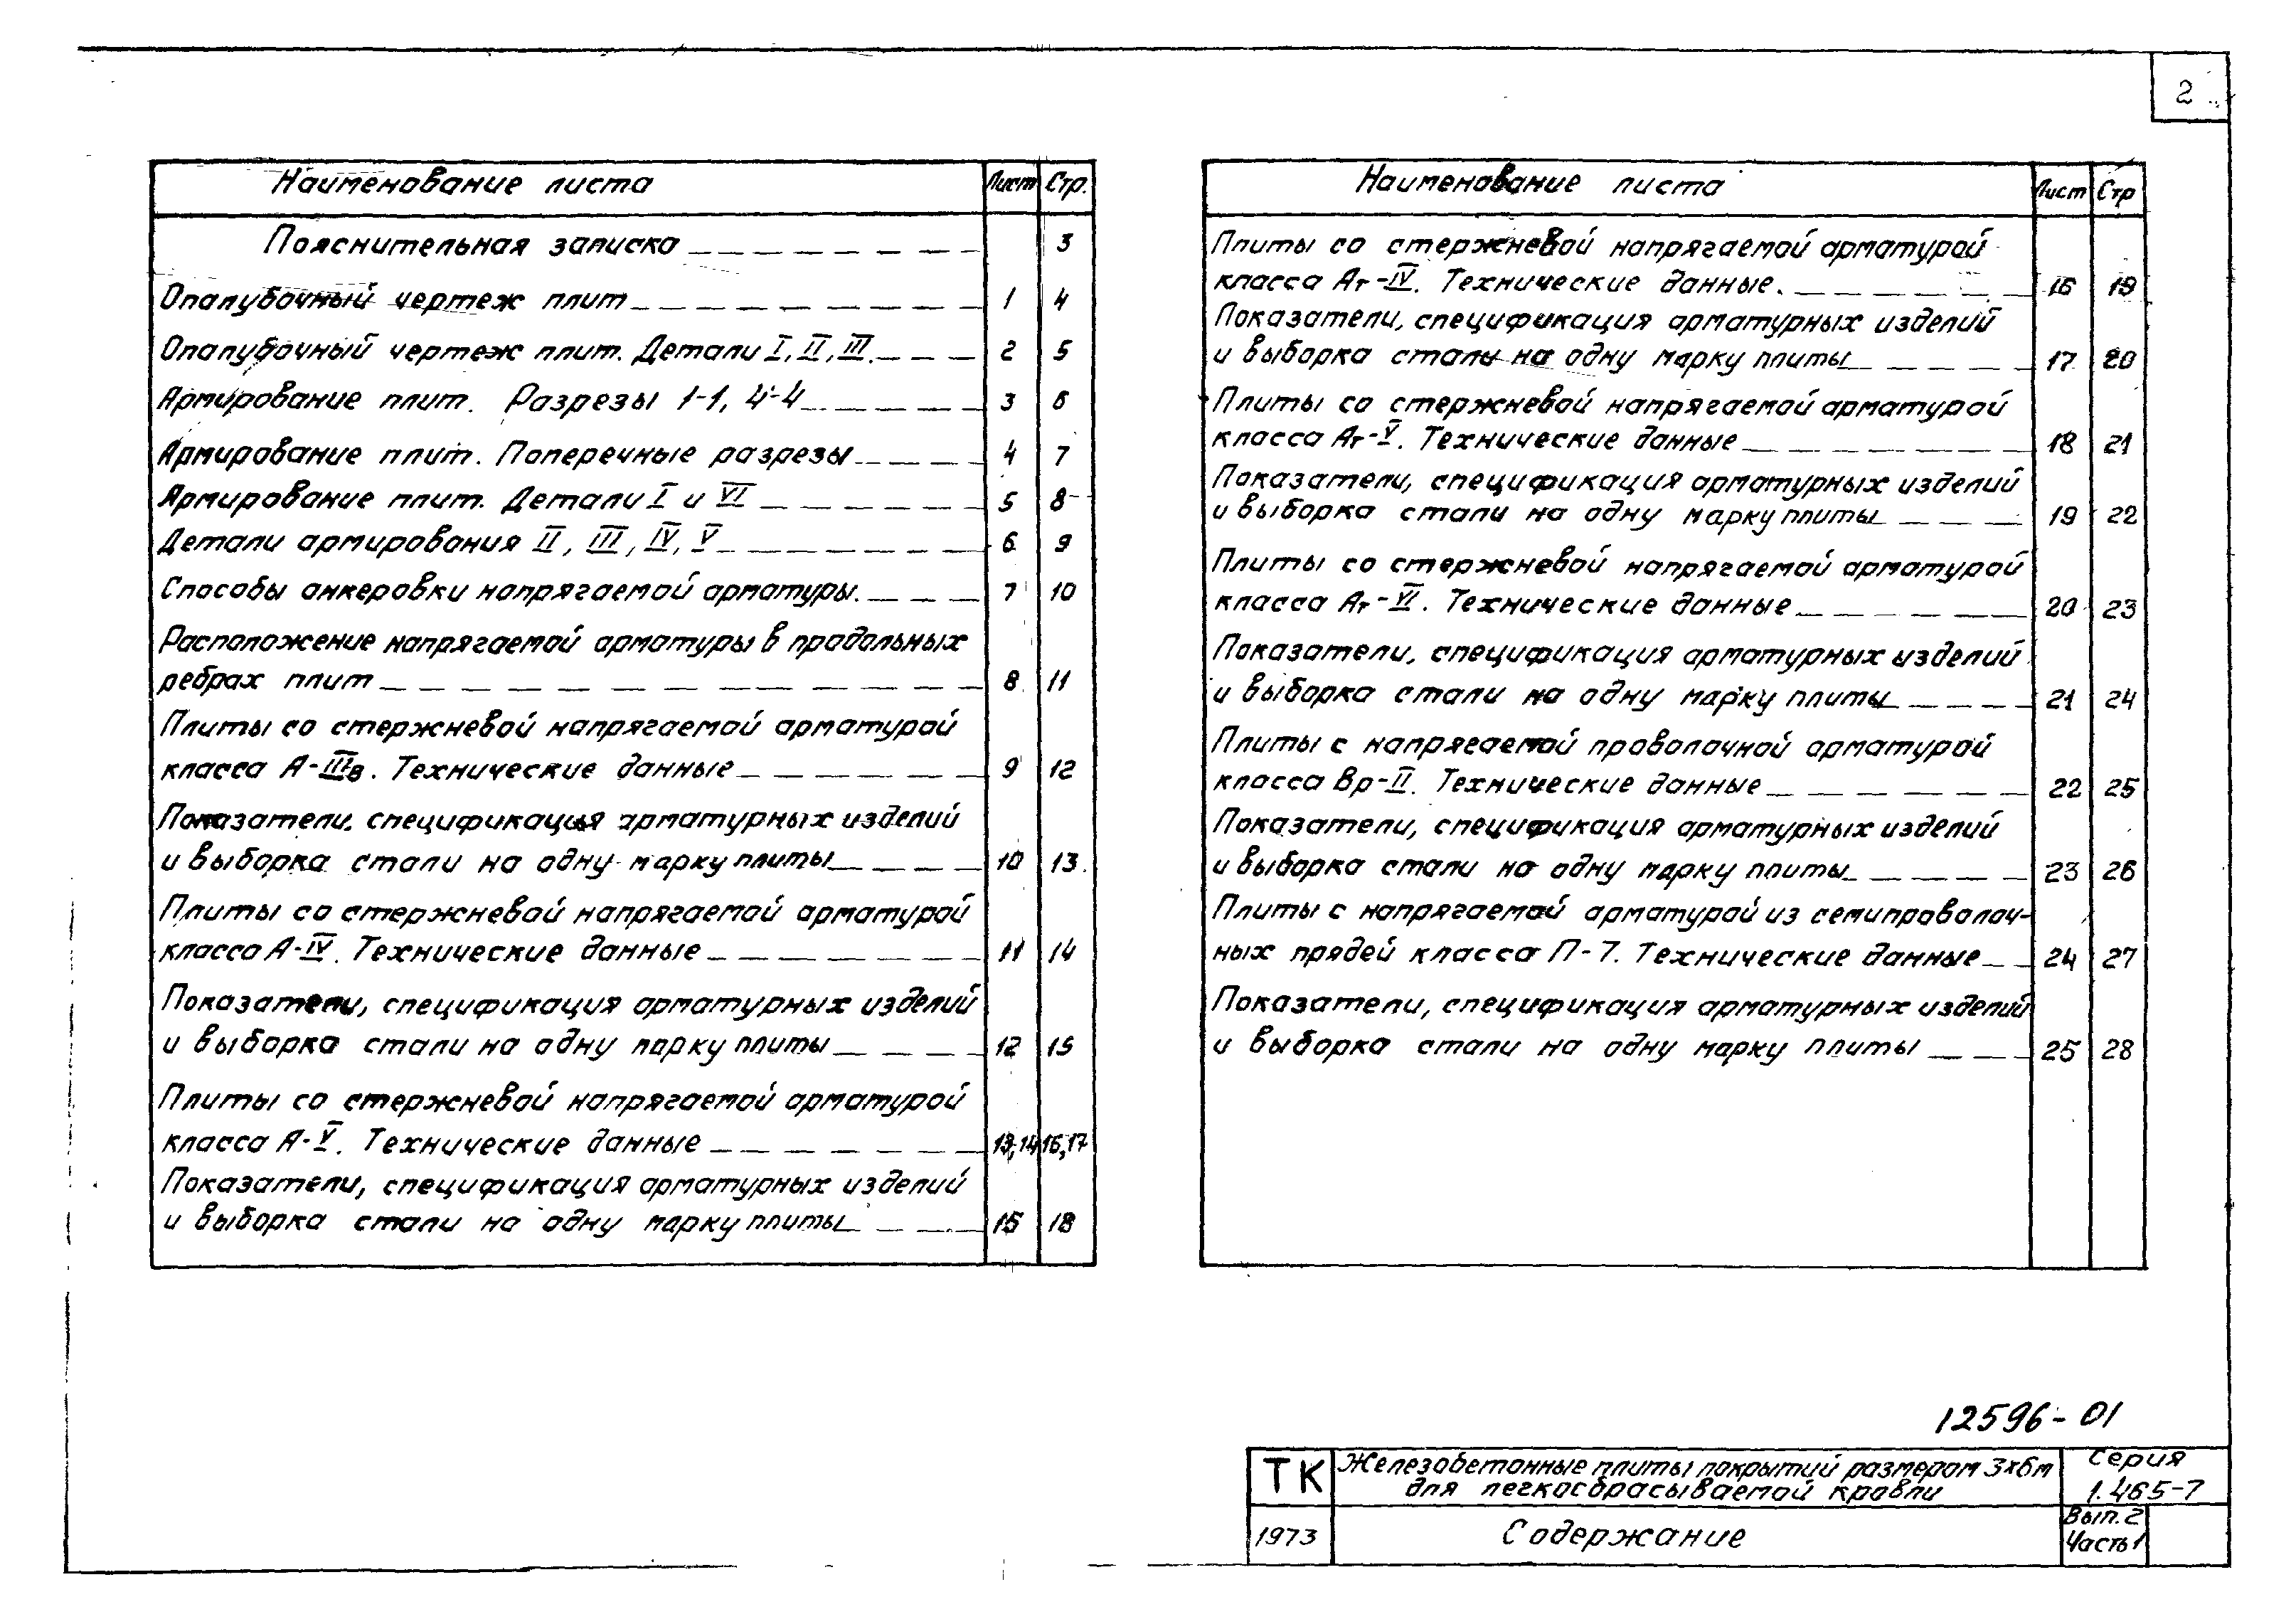 2
Наименование листа Лист Стр.
Пояснительная записка 3
Опалубочный чертеж плит 1 4
Опалубочный чертеж плит. Детали I, II, III. 2 5
Армирование плит. Разрезы 1-1, 4-4 3 6
Армирование плит. Поперечные разрезы 4 7
Армирование плит. Детали I и VI 5 8
Детали армирования II, III, IV, V 6 9
Способы анкеровки напрягаемой арматуры. 7 10
Расположение напрягаемой арматуры в продольных
ребрах плит 8 11
Плиты со стержневой напрягаемой арматурой
класса А-IIIв. Технические данные 9 12
Показатели, спецификация арматурных изделий
и выборка стали на одну марку плиты 10 13
Плиты со стержневой напрягаемой арматурой
класса А-IV. Технические данные 11 14
Показатели, спецификация арматурных изделий
и выборка стали на одну марку плиты 12 15
Плиты со стержневой напрягаемой арматурой
класса А-V. Технические данные 13,14 16,17
Показатели, спецификация арматурных изделий
и выборка стали на одну марку плиты 15 18
Наименование листа Лист Стр
Плиты со стержневой напрягаемой арматурой
класса Ат-IV. Технические данные. 16 19
Показатели, спецификация арматурных изделий
и выборка стали на одну марку плиты 17 20
Плиты со стержневой напрягаемой арматурой
класса Ат-V. Технические данные 18 21
Показатели, спецификация арматурных изделий
и выборка стали на одну марку плиты 19 22
Плиты со стержневой напрягаемой арматурой
класса Ат-VI. Технические данные 20 23
Показатели, спецификация арматурных изделий
и выборка стали на одну марку плиты 21 24
Плиты с напрягаемой проволочной арматурой
класса Вр-II. Технические данные 22 25
Показатели, спецификация арматурных изделий
и выборка стали на одну марку плиты 23 26
Плиты с напрягаемой арматурой из семипроволоч-
ных прядей класса П-7. Технические данные 24 27
Показатели, спецификация арматурных изделий
и выборка стали на одну марку плиты 25 28
12596-01
ТК Железобетонные плиты покрытий размером 3х6м Серия
для легкосбрасываемой кровли 1.465-7
1973 Содержание Вып. 2
Часть 1